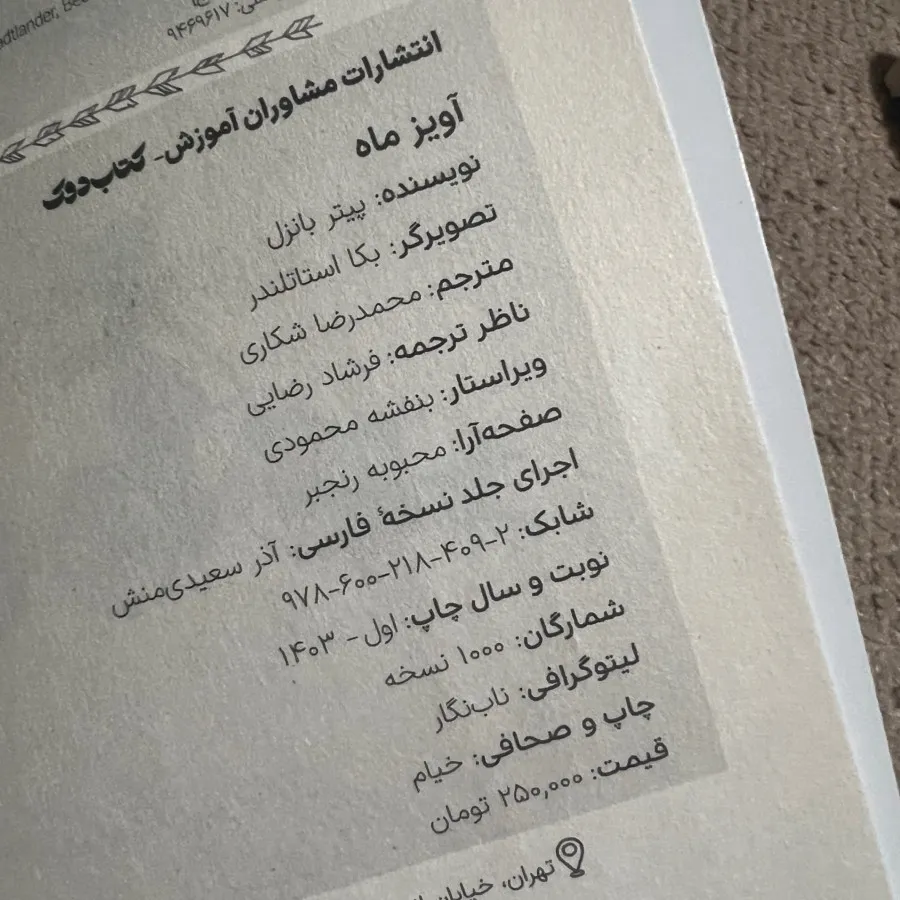 dtlander, Bec
۹۴۶۹۶۱۷
انتشارات مشاوران آموزش- کتاب‌دوک
آویز ماه
نویسنده: پیتر بانزل
تصویرگر: بکا استاتلندر
مترجم: محمدرضا شکاری
ناظر ترجمه: فرشاد رضایی
ویراستار: بنفشه محمودی
صفحه‌آرا: محبوبه رنجبر
اجرای جلد نسخهٔ فارسی: آذر سعیدی‌منش
شابک: ۲-۴۰۹-۲۱۸-۶۰۰-۹۷۸
نوبت و سال چاپ: اول - ۱۴۰۳
شمارگان: ۱۰۰۰ نسخه
لیتوگرافی: ناب‌نگار
چاپ و صحافی: خیام
قیمت: ۲۵۰,۰۰۰ تومان
تهران، خیابان